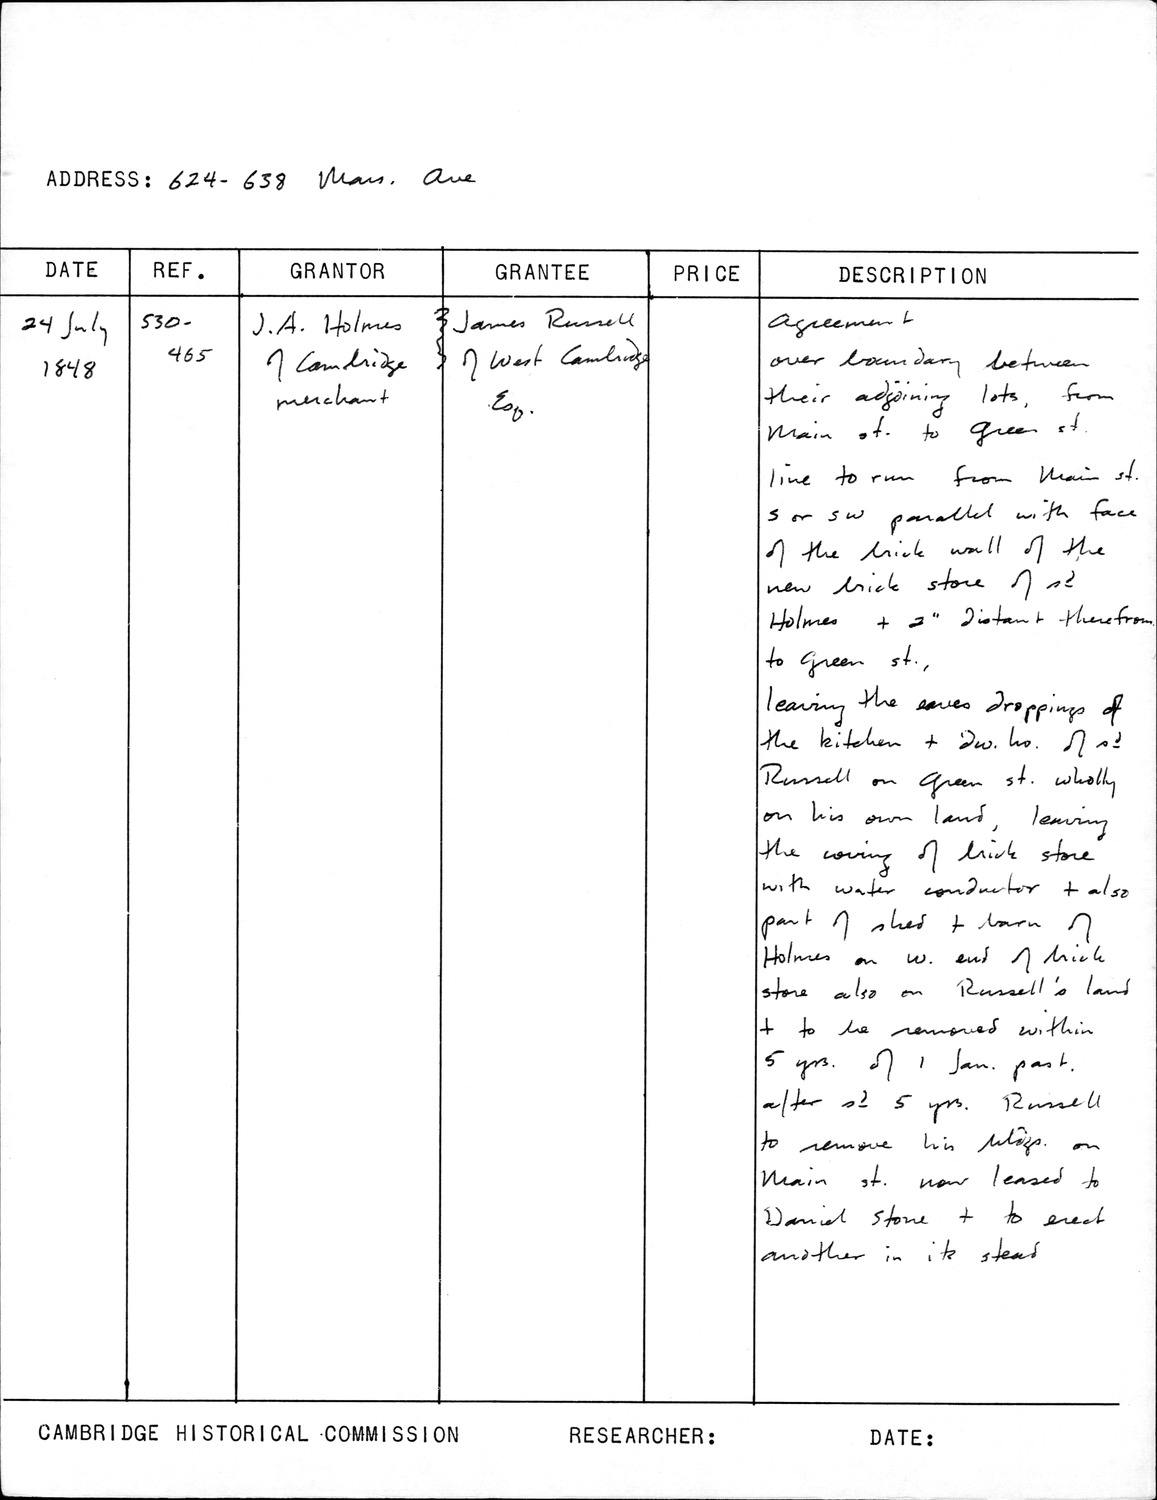 ADDRESS: 624-638 Mass. Ave
DATE REF. GRANTOR GRANTEE PRICE DESCRIPTION
24 July 1848
530-465
J.A. Holmes
of Cambridge
merchant
James Russell
of West Cambridge
Esq.
agreement
over boundary between
their adjoining lots, from
Main st. to Green st.
line to run from Main st.
S or SW parallel with face
of the brick wall of the
new brick store of sd
Holmes + 2" distant therefrom
to Green st.,
leaving the eaves droppings of
the kitchen + dw. ho. of sd
Russell on Green st. wholly
on his own land, leaving
the coving of brick store
with water conductor + also
part of shed + barn of
Holmes on w. end of brick
store also on Russell's land
+ to be removed within
5 yrs. of 1 Jan. past.
after sd 5 yrs. Russell
to remove his bldgs. on
Main st. now leased to
Daniel Stone + to erect
another in its stead
CAMBRIDGE HISTORICAL COMMISSION RESEARCHER: DATE: